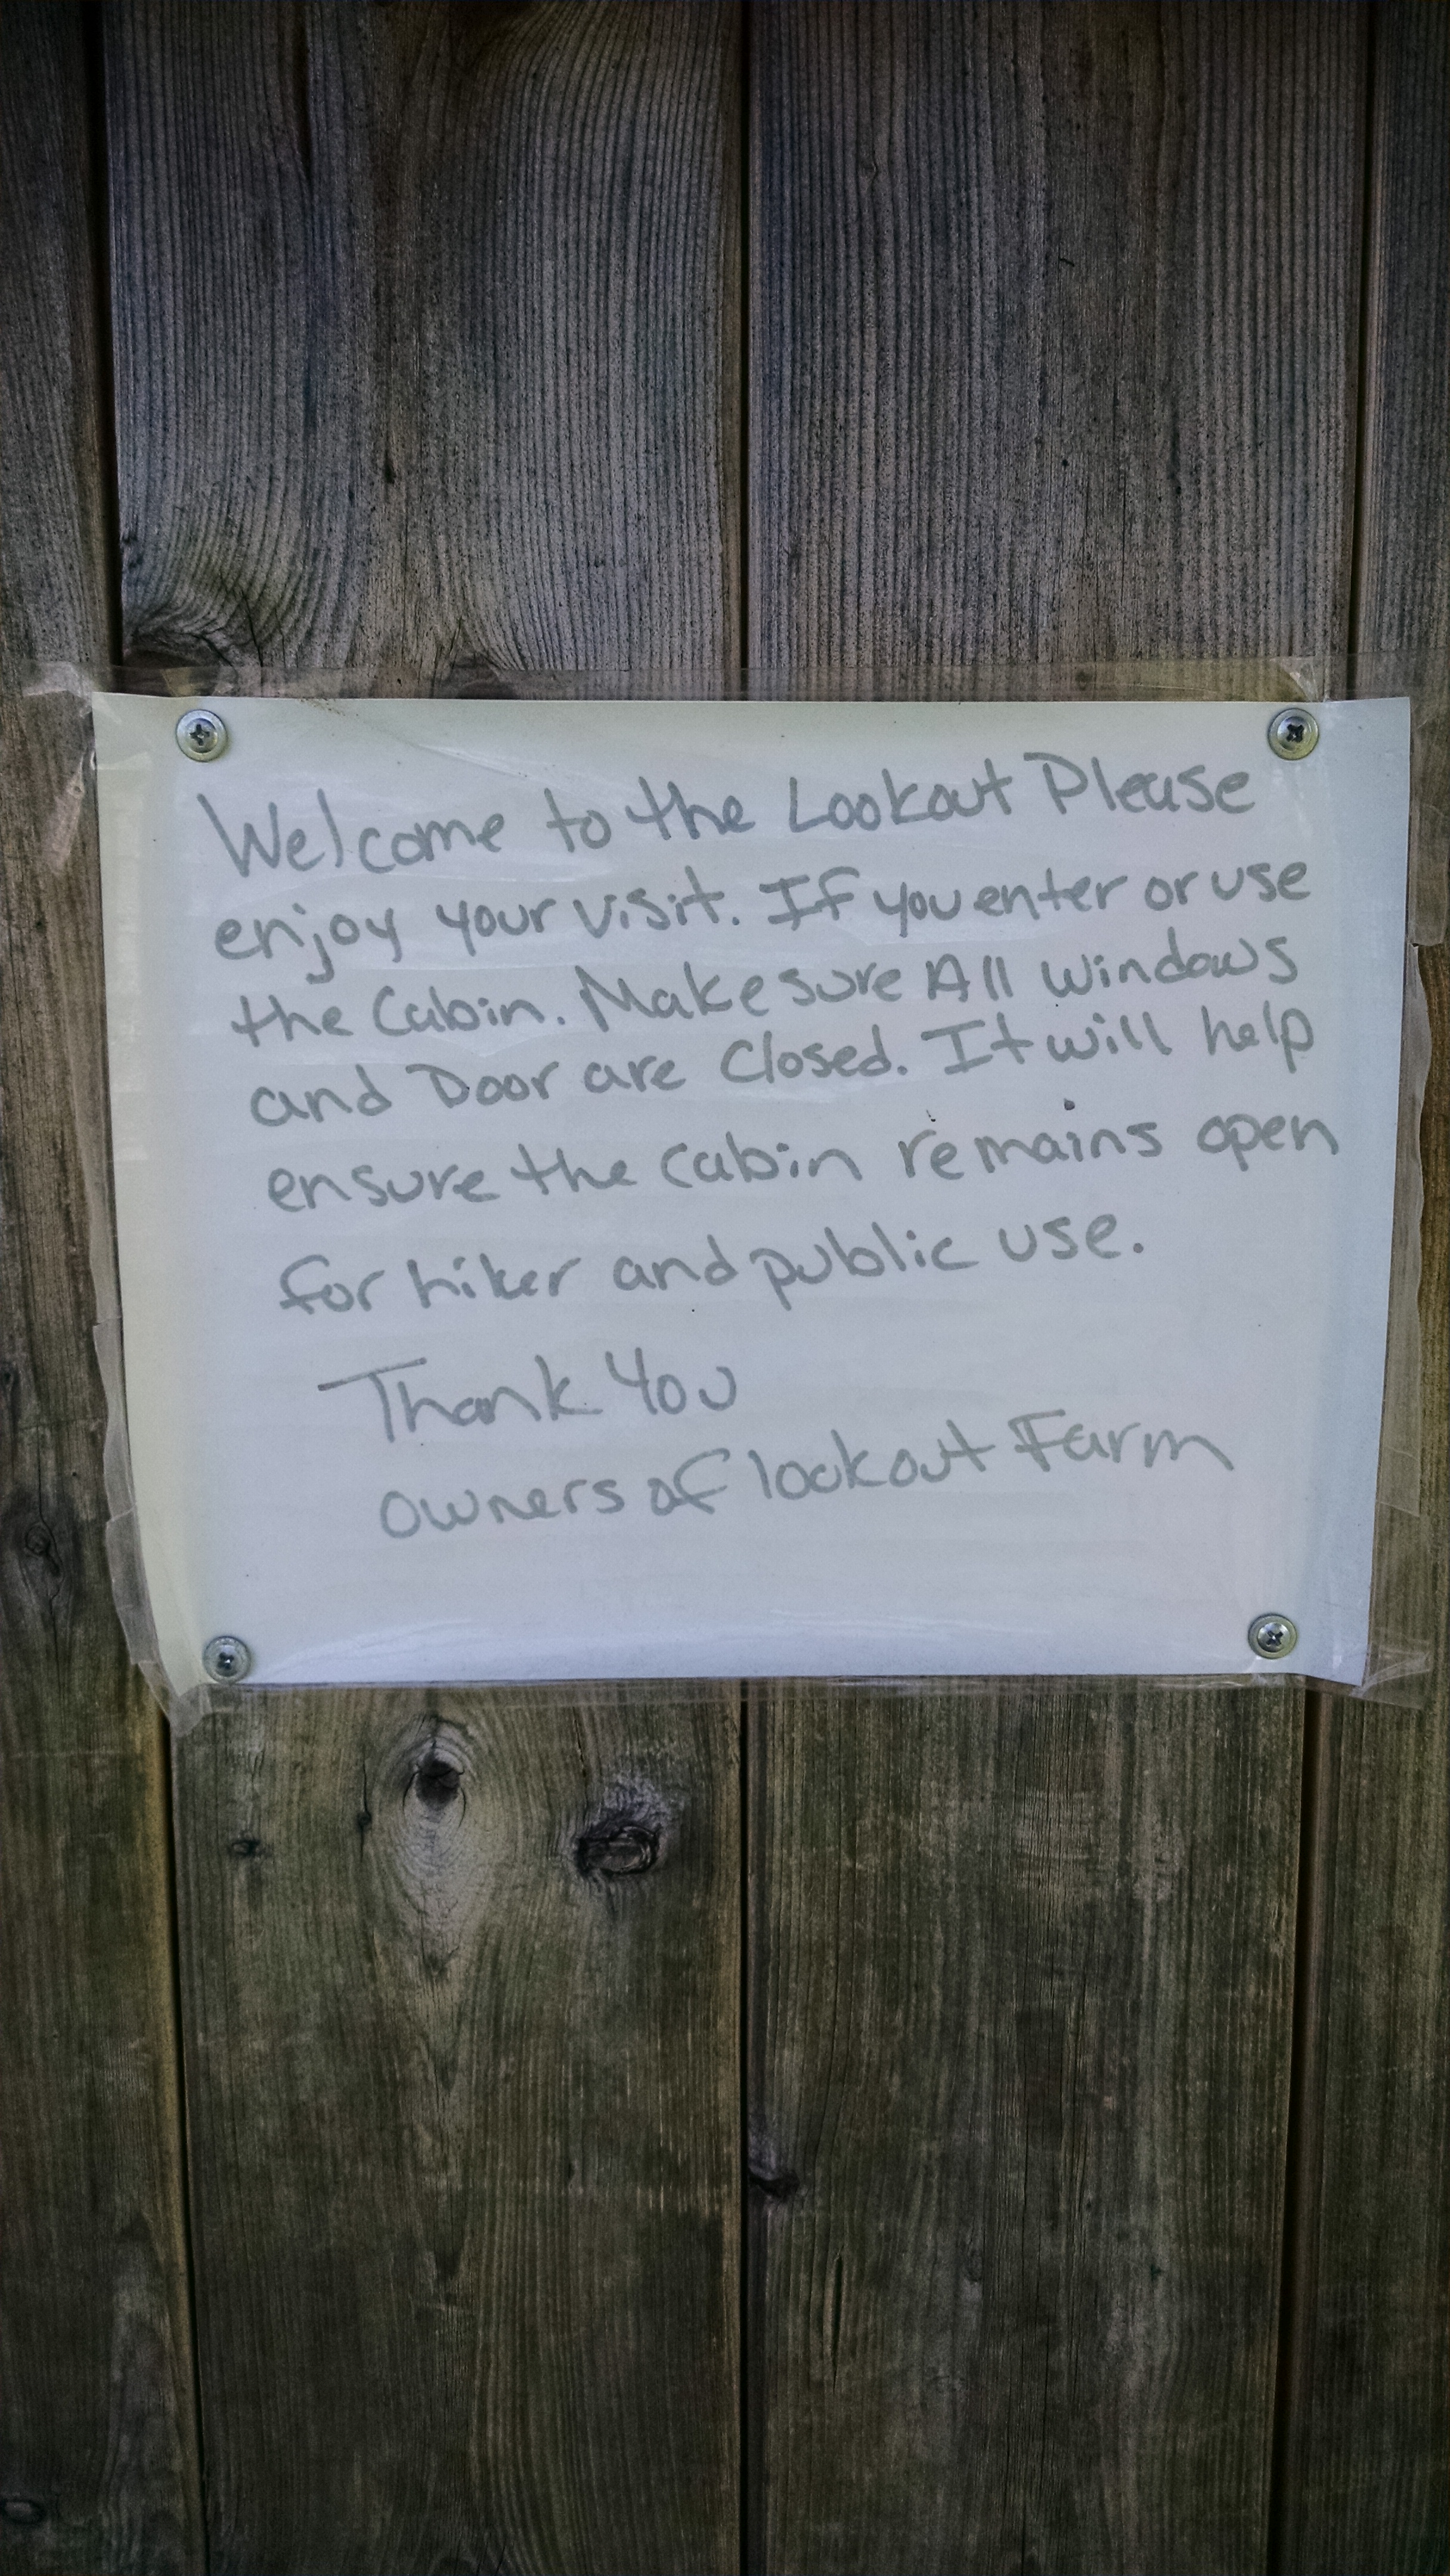 Welcome to the Lookout Please
enjoy your visit. If you enter or use
the Cabin. Make sure All windows
and Door are Closed. It will help
ensure the cabin remains open
for hiker and public use.
Thank You
owners of lookout Farm